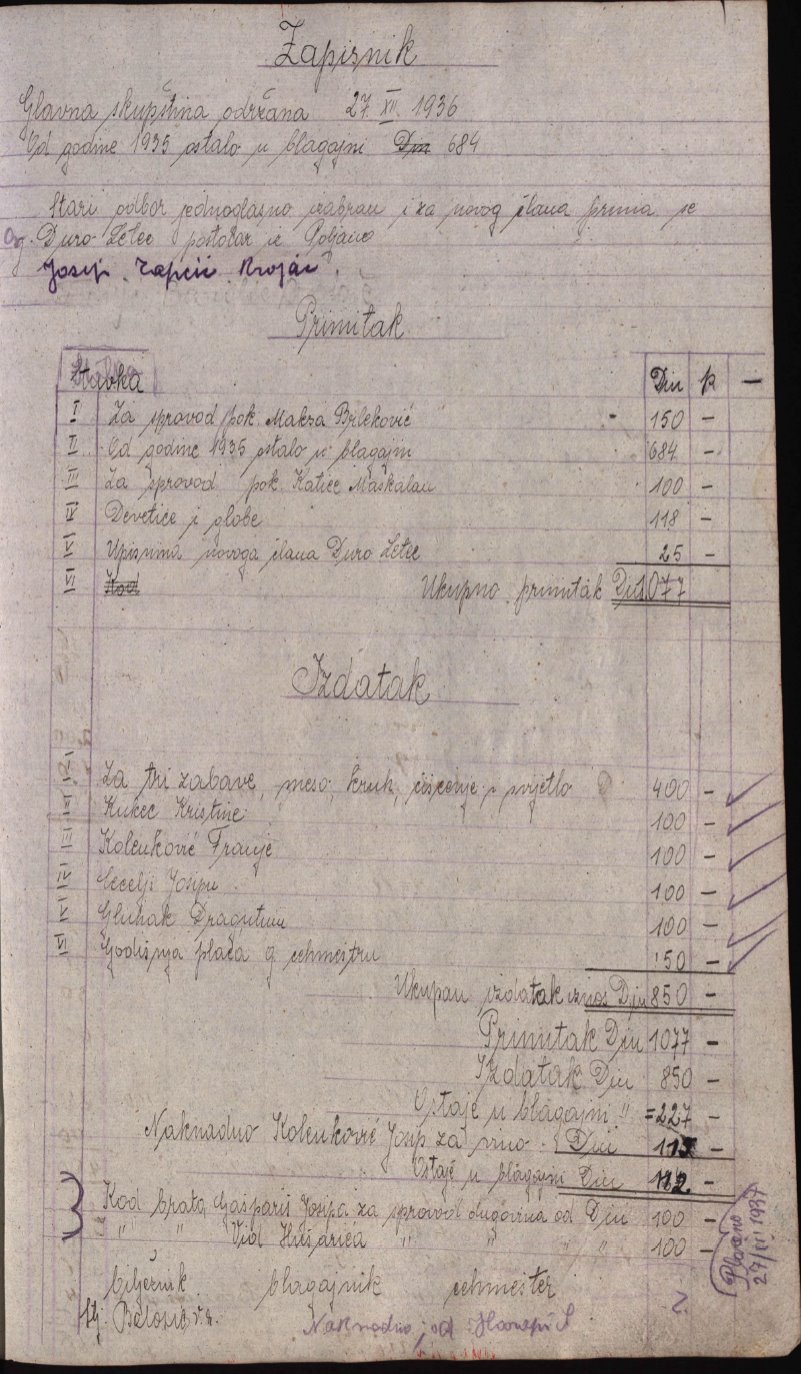 Zapisnik
Glavna skupština održana 27. XII. 1936
Od godine 1935 ostalo u blagajni Din 684
Stari odbor jednoglasno izabran i za novog člana prima se
Đuro Letec postolar iz Poljano
Josip krojač
Primitak
Stavka Din p —
I Za sprovod pok. Maksa Brleković 150 —
II Od godine 1935 ostalo u blagajni 684 —
III Za sprovod pok. Katice Maškalan 100 —
IV Devetice i globe 118 —
V Upisnina novoga člana Đuro Letec 25 —
VI Kod Ukupno primitak Din 1077
Izdatak
I Za tri zabave, meso, kruh, čišćenje i svjetlo 400 —
II Kukec Kristine 100 —
III Kolenković Franje 100 —
IV Cecelji Josipu 100 —
V Gluhak Dragutinu 100 —
VI Godišnja plaća g cehmeštru 50 —
Ukupan izdatak iznos Din 850 —
Primitak Din 1077 —
Izdatak Din 850 —
Ostaje u blagajni " = 227 —
Naknadno Kolenković Josip za vino Din 115 —
Ostaje u blagajni Din 112 —
Kod brata Gašpariš Josipa za sprovod dugovina od Din 100 —
" " Vid Hušarića " " " " 100 —
Plaćeno
27/XII 1937
bilježnik blagajnik cehmešter
Stj. Balošić v. r.
Naknadno od